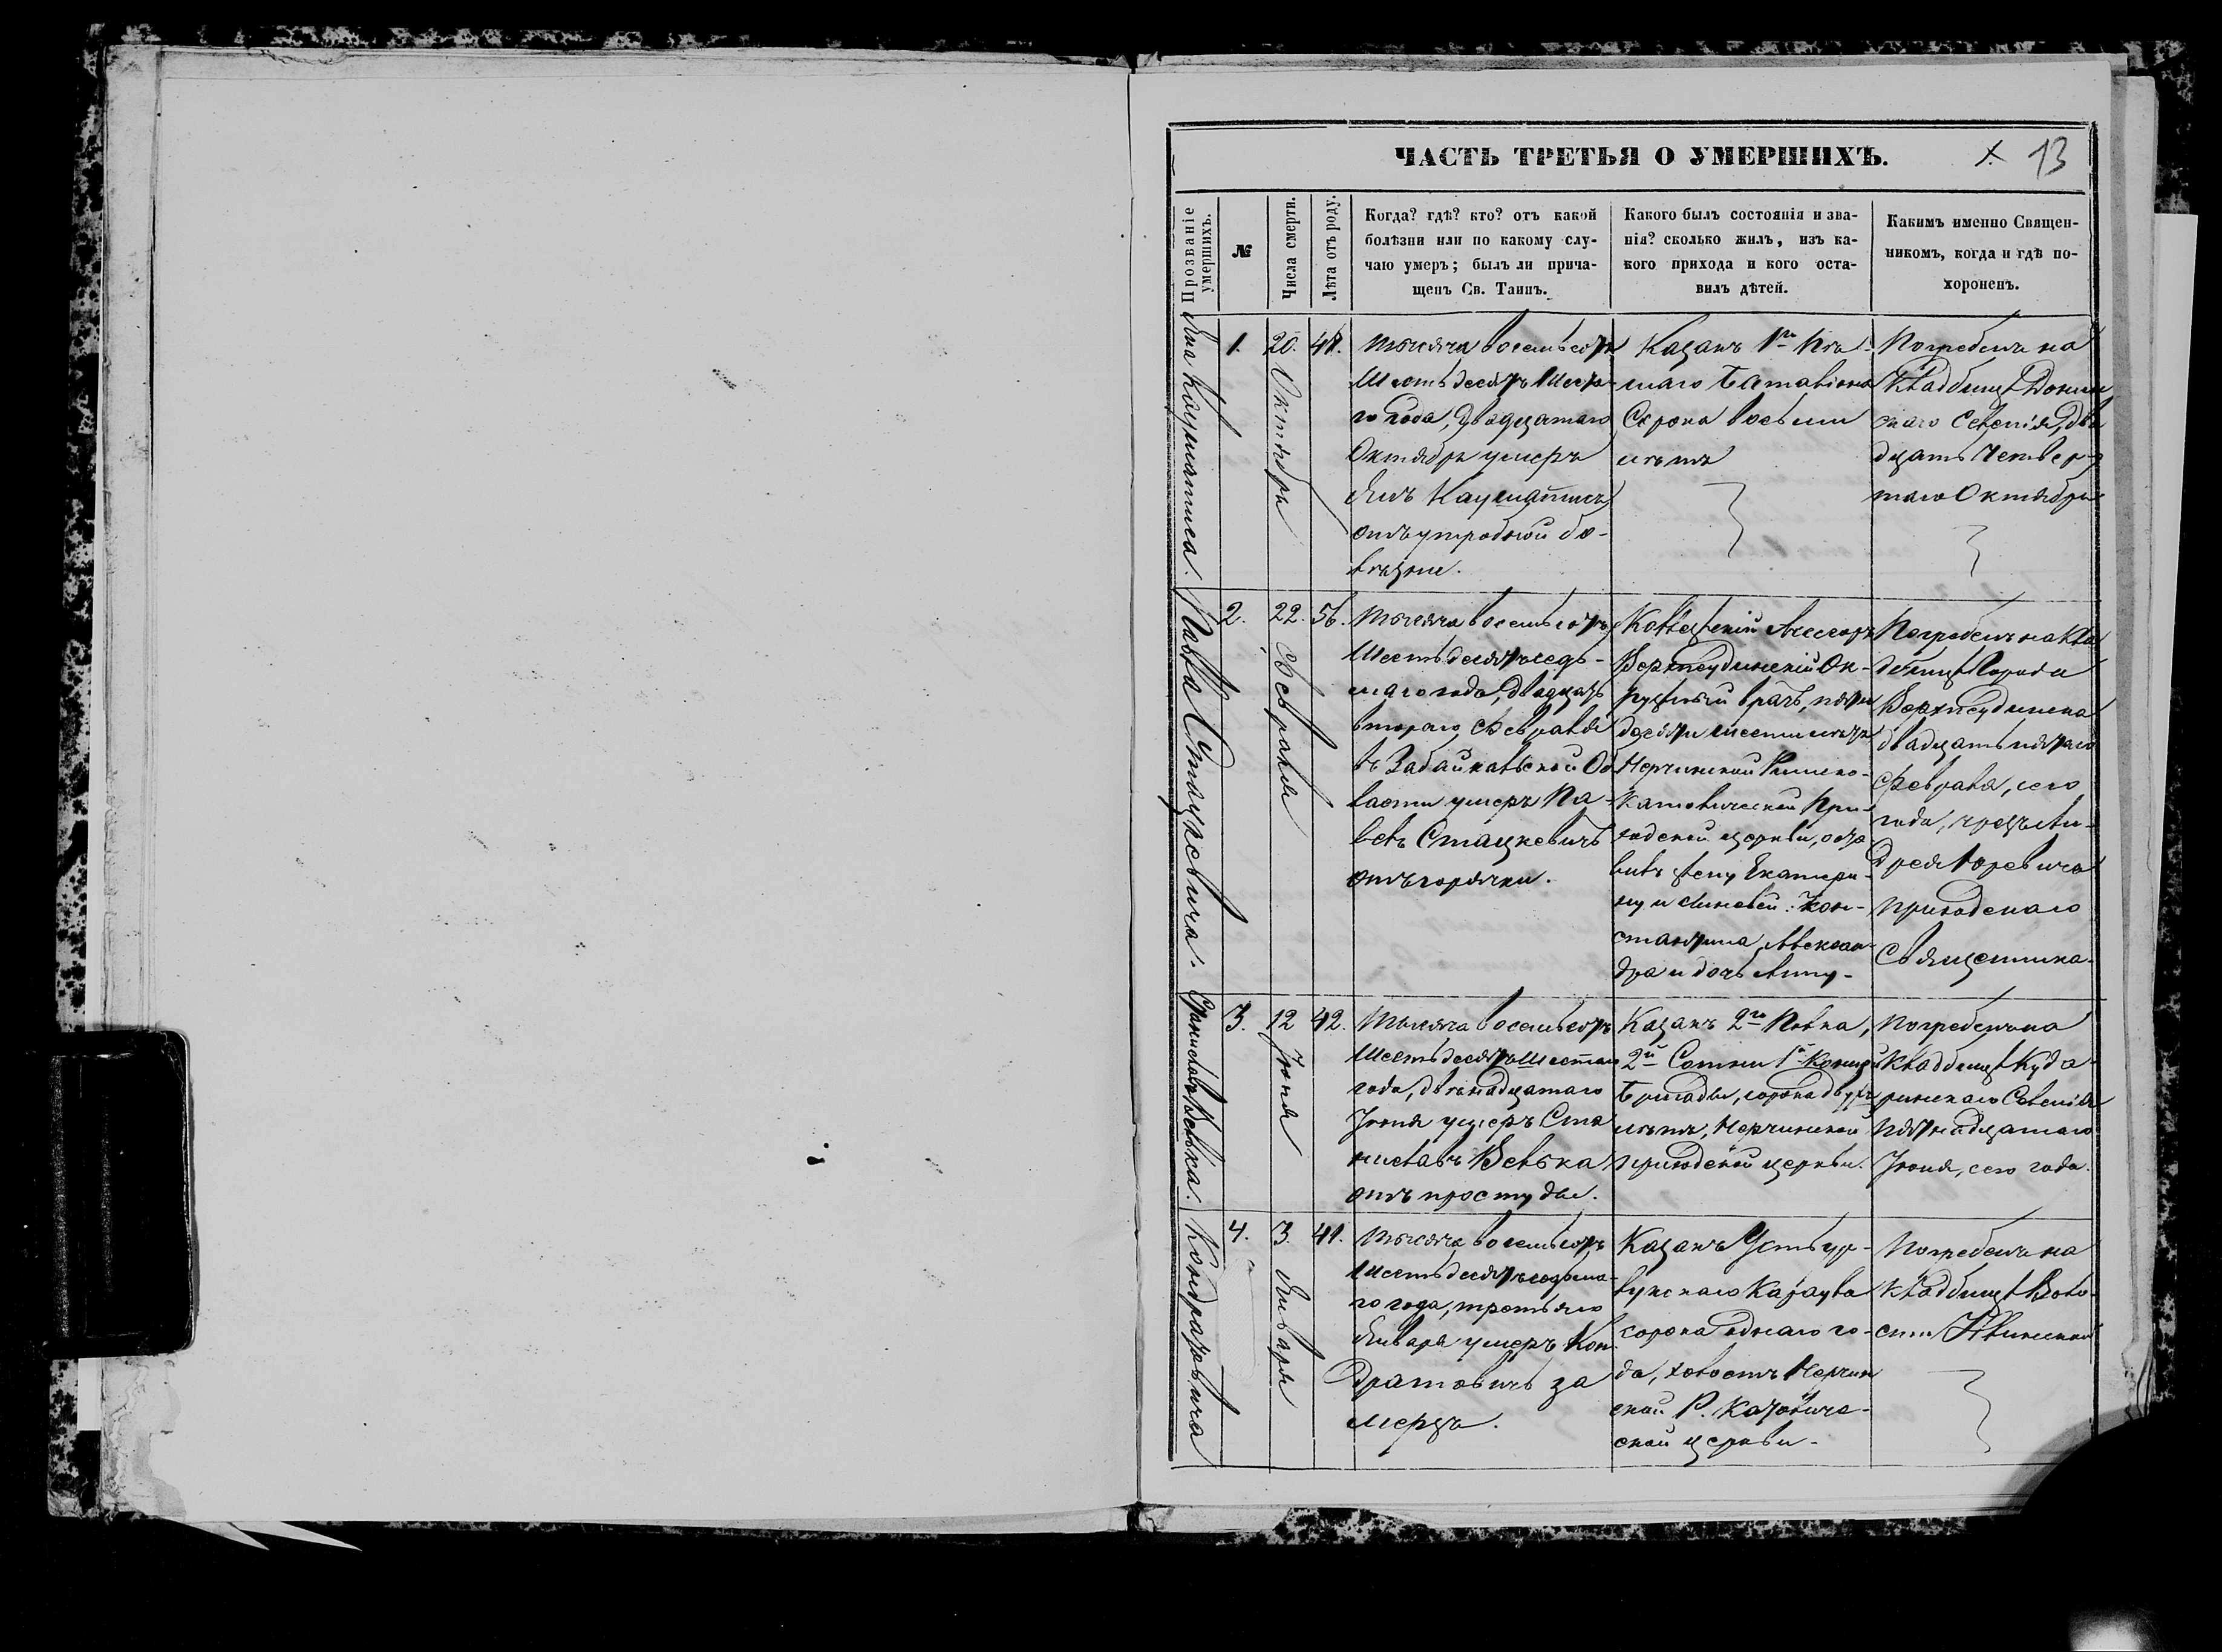 ЧАСТЬ ТРЕТЬЯ О УМЕРШИХЪ.
13
Прозваніе умершихъ.
№
Числа смерти.
Лѣта отъ роду.
Когда? гдѣ? кто? отъ какой
болѣзни или по какому слу-
чаю умеръ; былъ ли прича-
щенъ Св. Таинъ.
Какого былъ состоянія и зва-
нія? сколько жилъ, изъ ка-
кого прихода и кого оста-
вилъ дѣтей.
Какимъ именно Священ-
никомъ, когда и гдѣ по-
хороненъ.
Яна
1.
20.
Октября
Тысяча восемьсотъ
Шестьдесятъ Шеста-
го года, двадцатаго
Октября умеръ
Янъ
отъ утробной бо-
лѣзни.
Казакъ 1го Пѣ-
шаго Баталіона
Сорока восьми
лѣтъ
Погребенъ на
Кладбищѣ
скаго Селенія, два
дцать четвер-
таго Октября
Павла Стацкевича.
2.
22.
Февраля
56.
Тысяча восемьсотъ
Шестьдесятъ седь-
маго года, двадцать
втораго Февраля
въ Забайкальской Об
ласти умеръ Па-
велъ Стацкевичъ
отъ горячки.
Коллежскій Ассесоръ
Верхнеудинскій Ок-
ружный врачъ, пяти
десяти шести лѣтъ
Нерчинской Римско-
Католической При-
ходской церкви, оста
вилъ жену Екатери-
ну и сыновей: Кон-
стантина, Алексан-
дра и дочь Анну-
Погребенъ на Кла
дбищѣ Города
Верхнеудинска
двадцать пятаго
Февраля, сего
года, чрезъ Ан-
дрея Юревича
приходскаго
Священника.
Станислава Велька.
3.
12
Іюня
42.
Тысяча восемьсотъ
Шестьдесятъ Шестаго
года, двѣнадцатаго
Іюня умеръ Ста
ниславъ Велька
отъ простуды.
Казакъ 2го Полка,
2й Сотни 1й Конной
Бригады, сорока двухъ
лѣтъ, Нерчинской
приходской церкви.
Погребенъ на
Кладбищѣ Куда-
ринскаго Селенія
пятнадцатаго
Іюня, сего года.
Кондратовича
4.
3.
Января
41.
Тысяча восемьсотъ
шестьдесятъ седьма-
го года, третьяго
Января умеръ Кон
дратовичъ за
мерзъ.
Казакъ Усть ур-
лукскаго Караула
сорока однаго го-
да, холостъ Нерчин
ской Р. Католиче-
ской церкви-
Погребенъ на
Кладбищѣ Воло-
сти